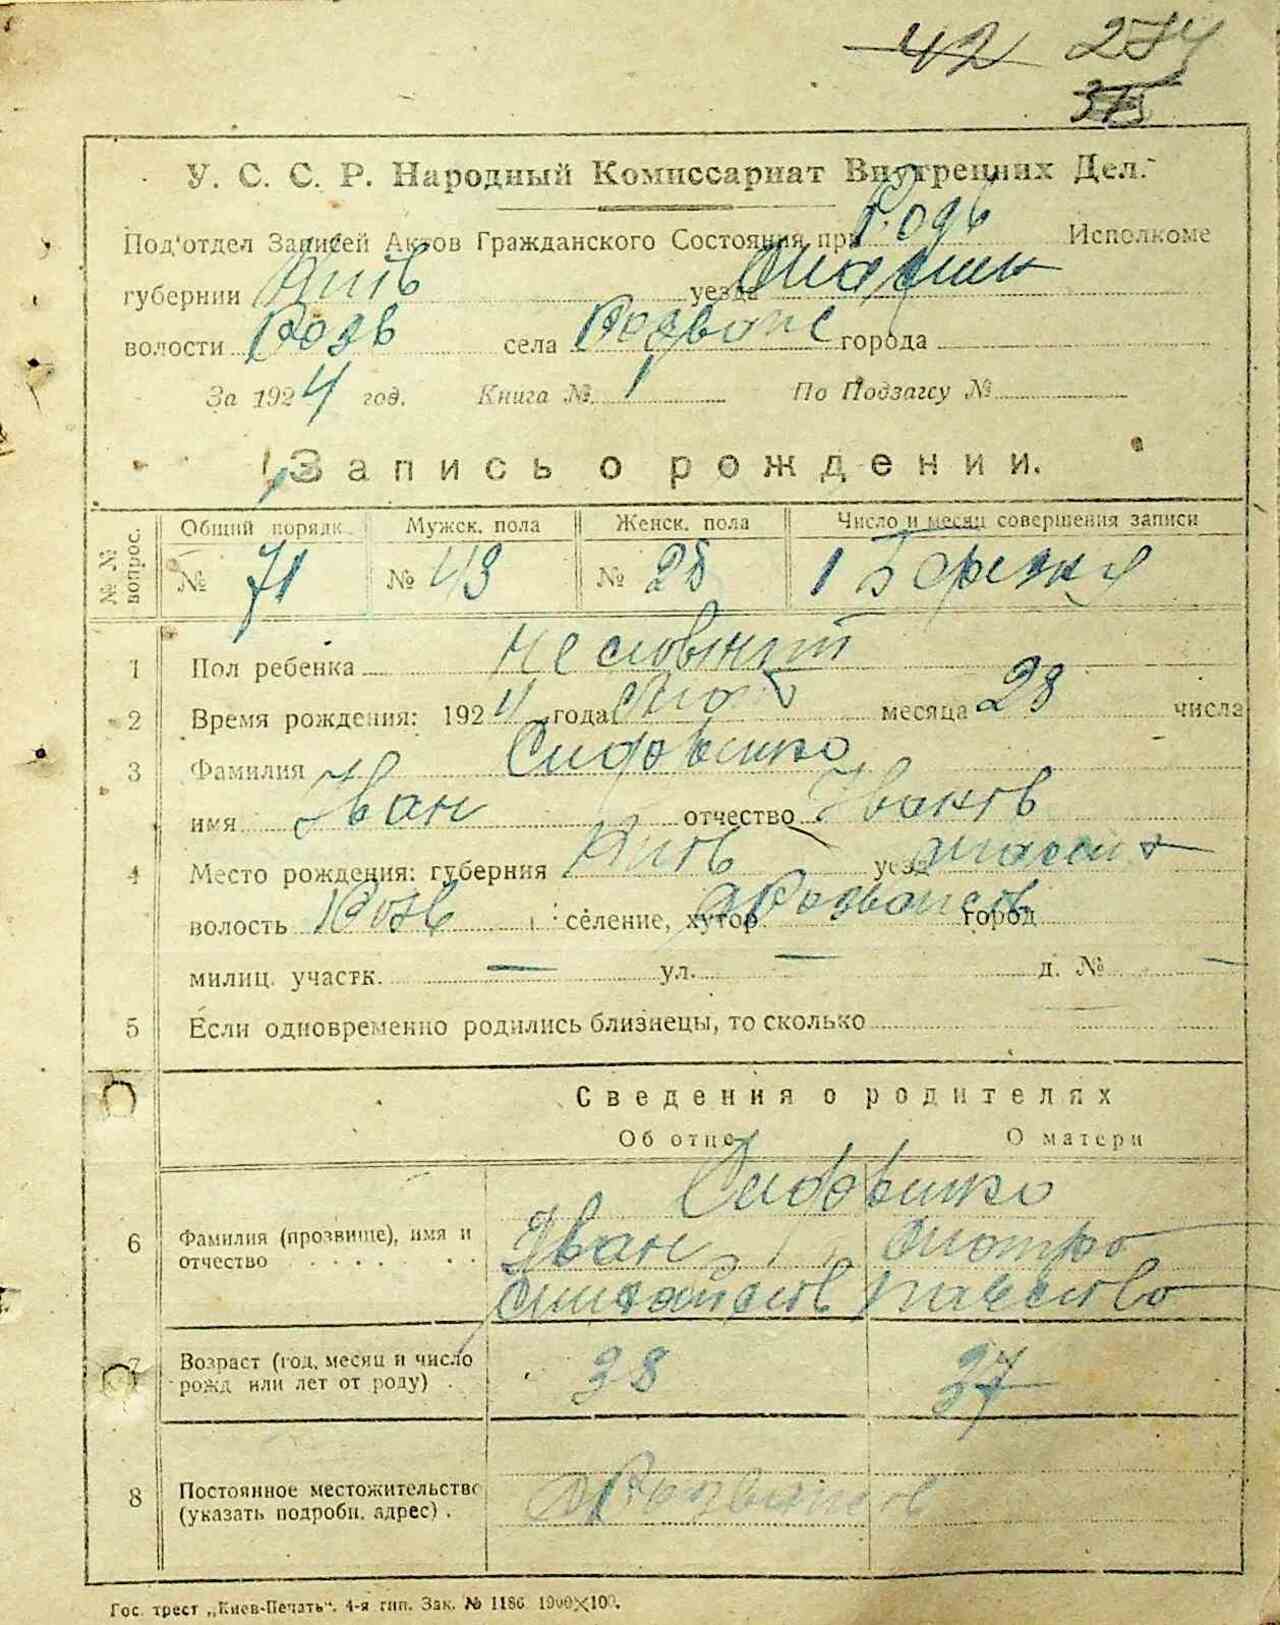 42 274
375
У. С. С. Р. Народный Комиссариат Внутренних Дел.
Под'отдел Записей Актов Гражданского Состояния при Розв Исполкоме
губернии Київ уезда
волости Розв села города
За 1924 год. Книга № 1 По Подзагсу №
Запись о рождении.
№№ вопрос. Общий порядк. Мужск. пола Женск. пола Число и месяц совершения записи
№ 71 № 43 № 28 1 Березня
1 Пол ребенка
2 Время рождения: 1924 года месяца 28 числа
3 Фамилия
имя Іван отчество Іванов
4 Место рождения: губерния Київ уезд
волость Розв селение, хутор город
милиц. участк. — ул. — д. № —
5 Если одновременно родились близнецы, то сколько
Сведения о родителях
Об отце О матери
6 Фамилия (прозвище), имя и
отчество Іван Мотря
7 Возраст (год, месяц и число
рожд или лет от роду) . 38 37
8 Постоянное местожительство
(указать подробн. адрес) .
Гос. трест „Киев-Печать“. 4-я тип. Зак. № 1186 1000×100.